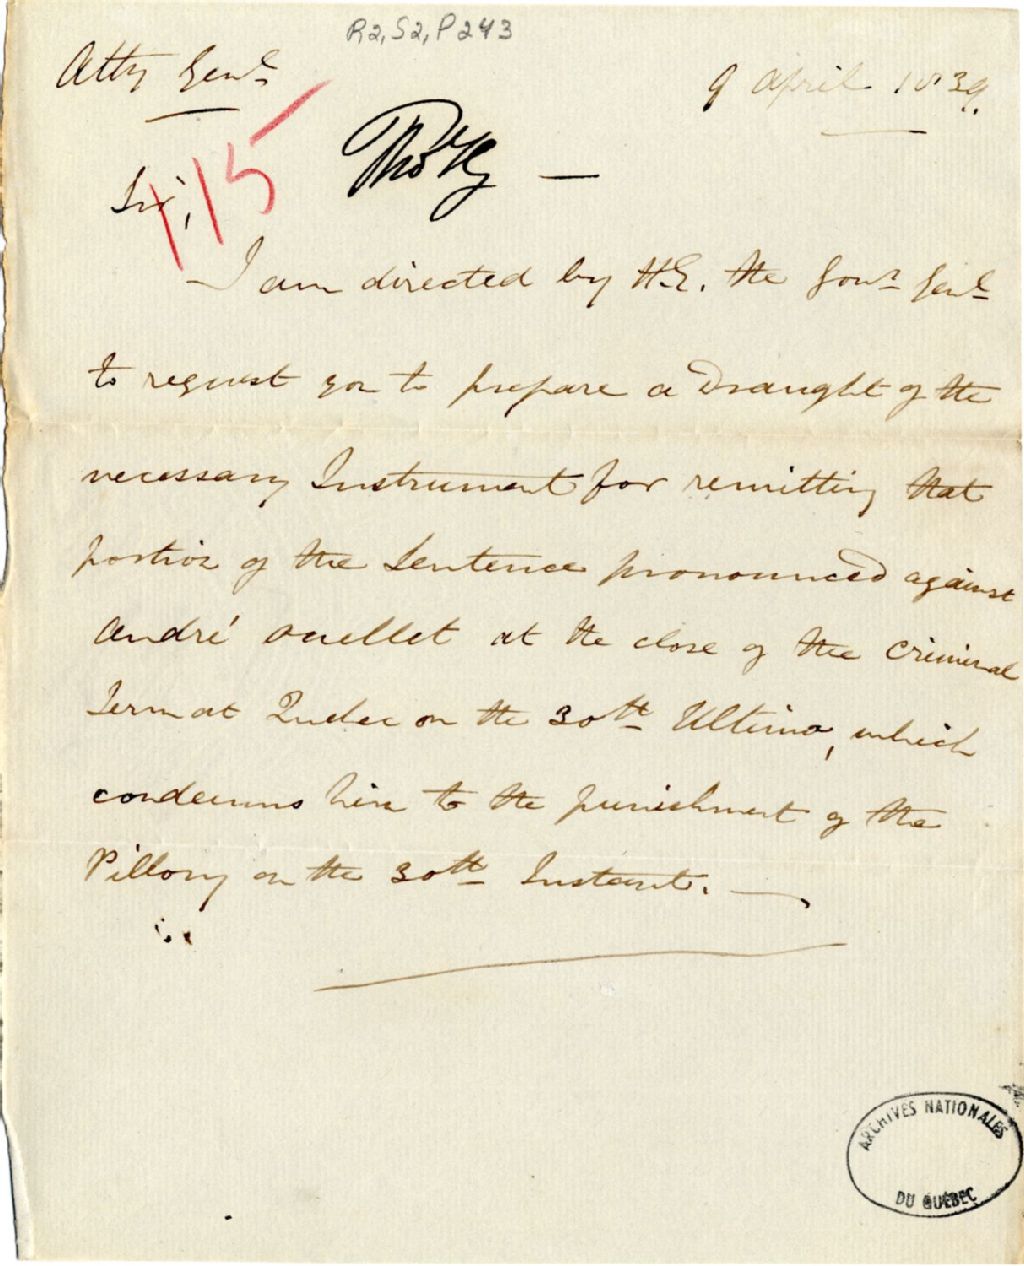 R2, S2, P243
Atty Genl
9 April 1839.
115
Sir,
I am directed by H.E. the Govr Genl
to request you to prepare a Draught of the
necessary Instrument for remitting that
portion of the Sentence pronounced against
André Ouellet at the close of the Criminal
Term at Quebec on the 30th Ultimo, which
condemns him to the punishment of the
Pillory on the 30th Instant.
ARCHIVES NATIONALES
DU QUÉBEC